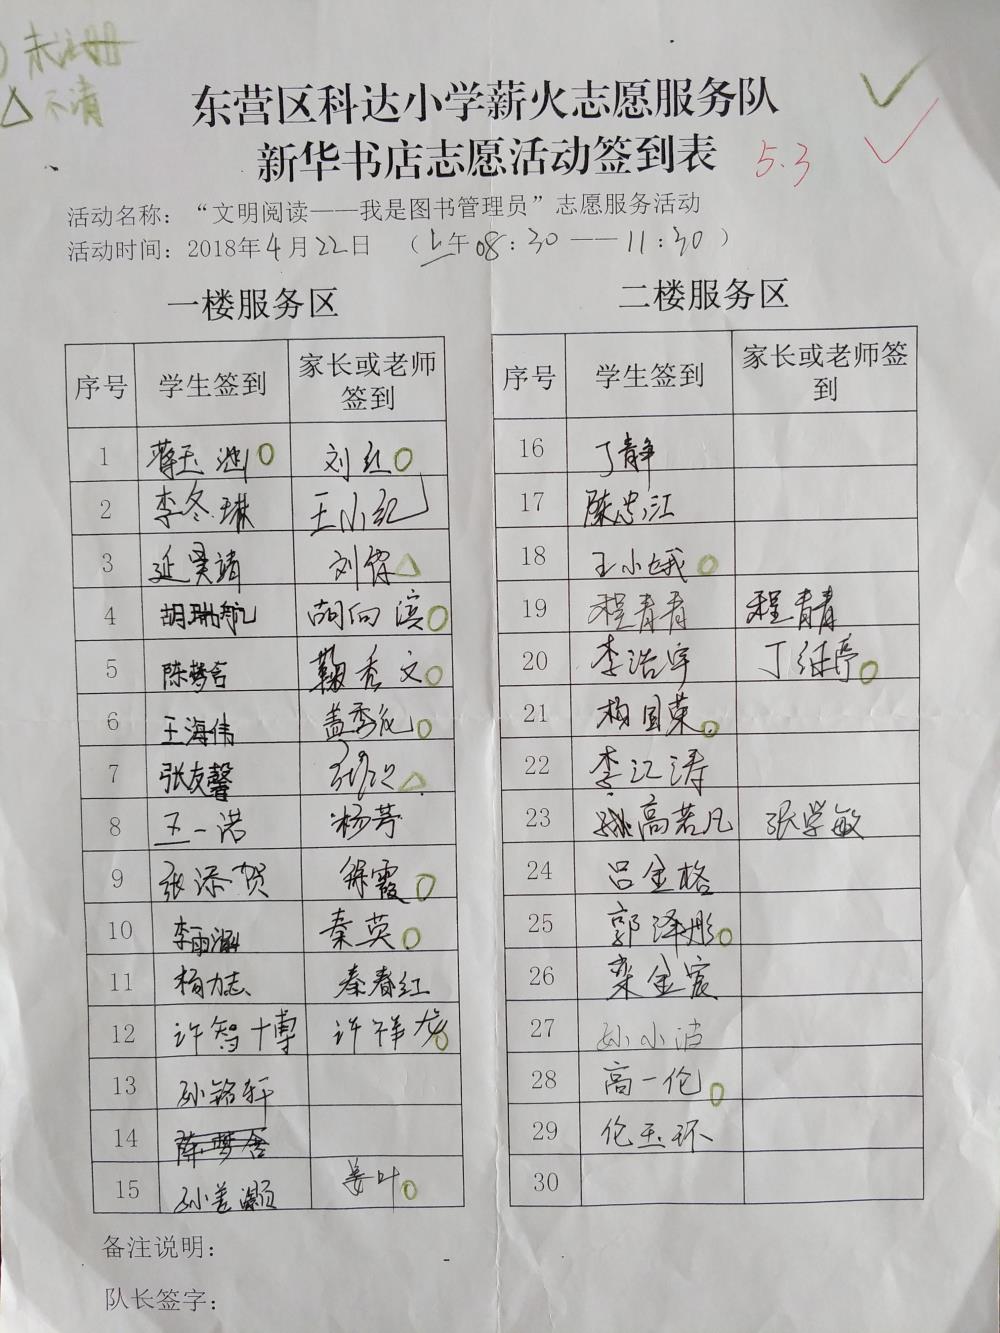 未注册
△ 不清
东营区科达小学薪火志愿服务队
新华书店志愿活动签到表 5.3
活动名称：“文明阅读——我是图书管理员”志愿服务活动
活动时间：2018年4月22日 （上午08：30——11：30）
一楼服务区
序号 学生签到 家长或老师签到
1 蒋玉 刘红
2 李冬琳 王小红
3 延昊靖 刘
4 胡瑞航 胡向滨
5 陈梦含 鞠秀文
6 王海伟 盖季
7 张友馨
8 王一诺 杨芳
9 张添贺 徐霞
10 李雨涵 秦英
11 杨力志 秦春红
12 许智博 许祥
13 孙铭轩
14 陈梦含
15 孙善灏 姜叶
二楼服务区
序号 学生签到 家长或老师签到
16 丁静
17 陈忠江
18 王小娥
19 程青青 程青青
20 李浩宇 丁
21 杨国荣
22 李江涛
23 姚高若凡 张学敏
24 吕金格
25 郭泽彤
26 栾金宸
27 孙小洁
28 高一伦
29 伦玉环
30
备注说明：
队长签字：